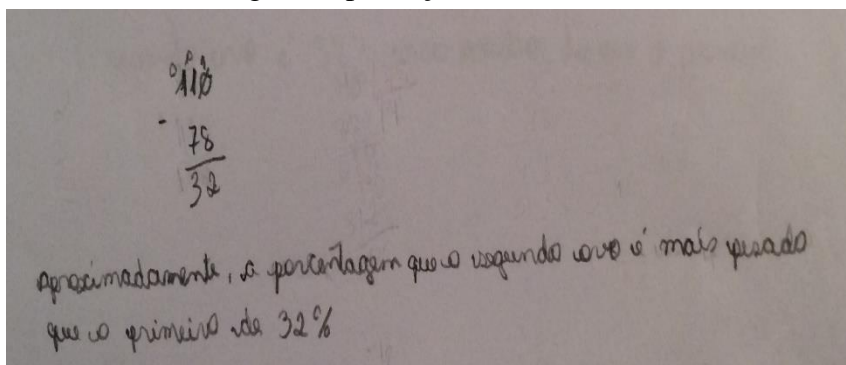 110
- 78
32
Aproximadamente, a porcentagem que o segundo ovo é mais pesado
que o primeiro de 32%